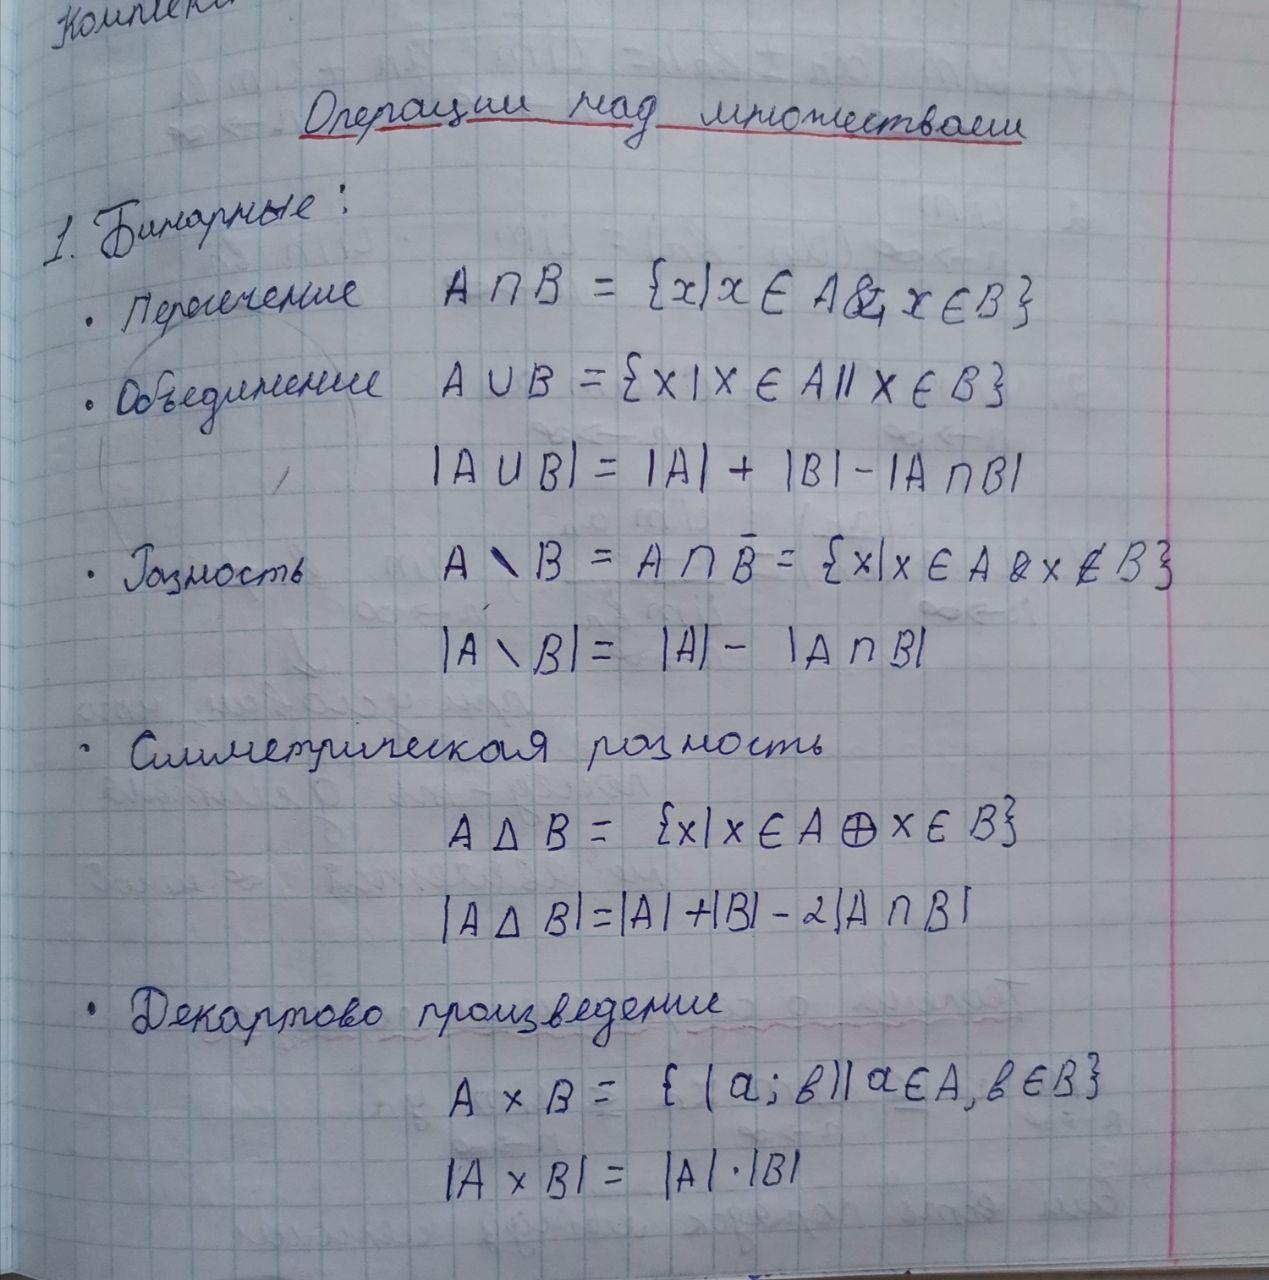 Операции над множествами
1. Бинарные:
• Пересечение A ∩ B = {x|x ∈ A & x ∈ B}
• Объединение A ∪ B = {x | x ∈ A || x ∈ B}
|A ∪ B| = |A| + |B| - |A ∩ B|
• Разность A \ B = A ∩ B̄ = {x|x ∈ A & x ∉ B}
|A \ B| = |A| - |A ∩ B|
• Симметрическая разность
A Δ B = {x|x ∈ A ⊕ x ∈ B}
|A Δ B| = |A| + |B| - 2|A ∩ B|
• Декартово произведение
A × B = {(a; b)| a ∈ A, b ∈ B}
|A × B| = |A| · |B|